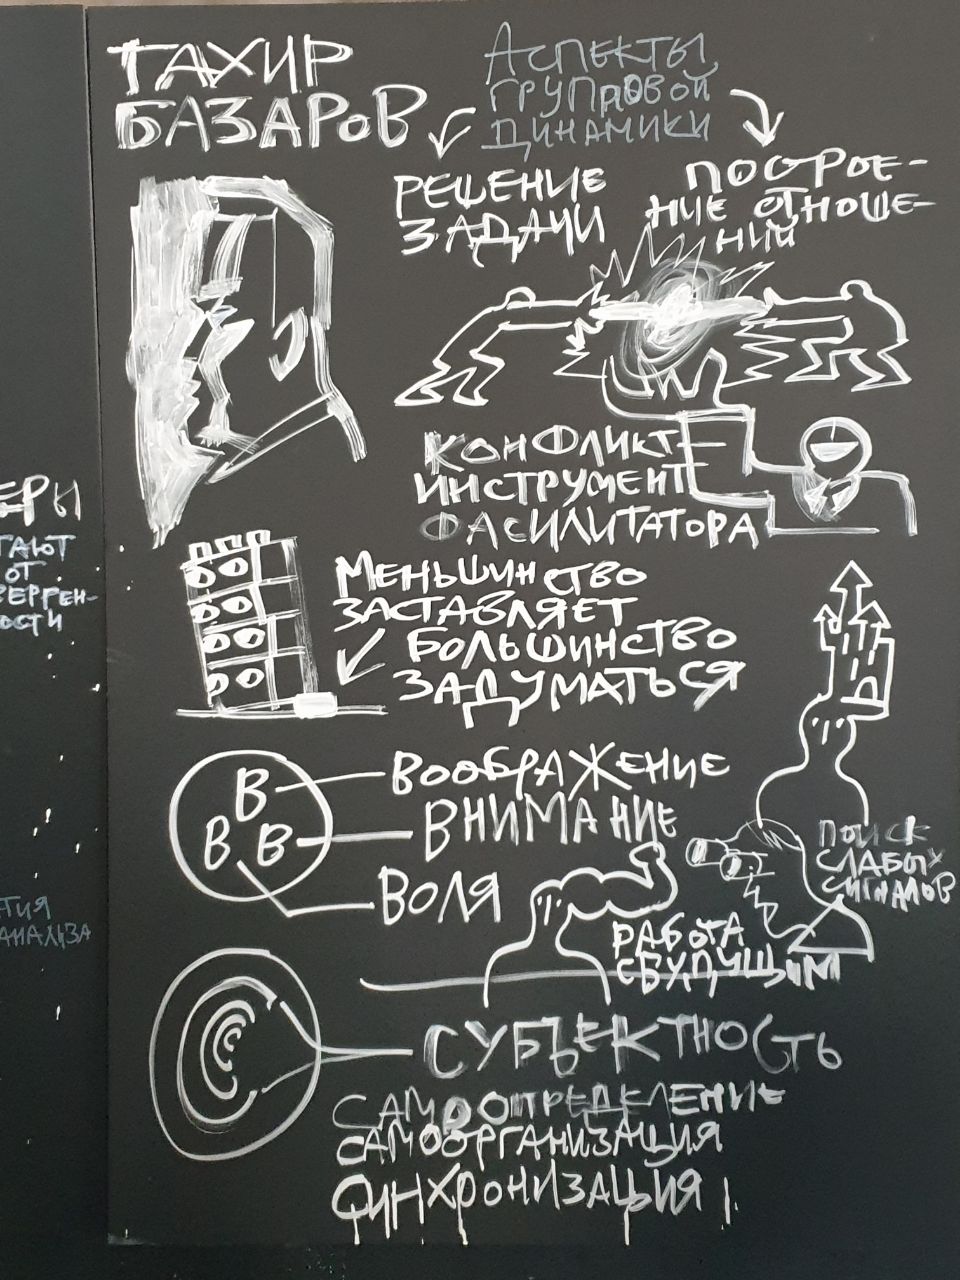 ТАХИР
БАЗАРОВ
АСПЕКТЫ
ГРУППОВОЙ
ДИНАМИКИ
РЕШЕНИЕ
ЗАДАЧИ
ПОСТРОЕ-
НИЕ ОТНОШЕ-
НИЙ
КОНФЛИКТ-
ИНСТРУМЕНТ
ФАСИЛИТАТОРА
МЕНЬШИНСТВО
ЗАСТАВЛЯЕТ
БОЛЬШИНСТВО
ЗАДУМАТЬСЯ
В
В В
ВООБРАЖЕНИЕ
ВНИМАНИЕ
ВОЛЯ
ПОИСК
СЛАБЫХ
СИГНАЛОВ
РАБОТА
С БУДУЩИМ
СУБЪЕКТНОСТЬ
САМООПРЕДЕЛЕНИЕ
САМООРГАНИЗАЦИЯ
СИНХРОНИЗАЦИЯ!
ЕРЫ
ГАЮТ
ОТ
ВЕРГЕН-
ОСТИ
ТИЯ
АНАЛЬЗА